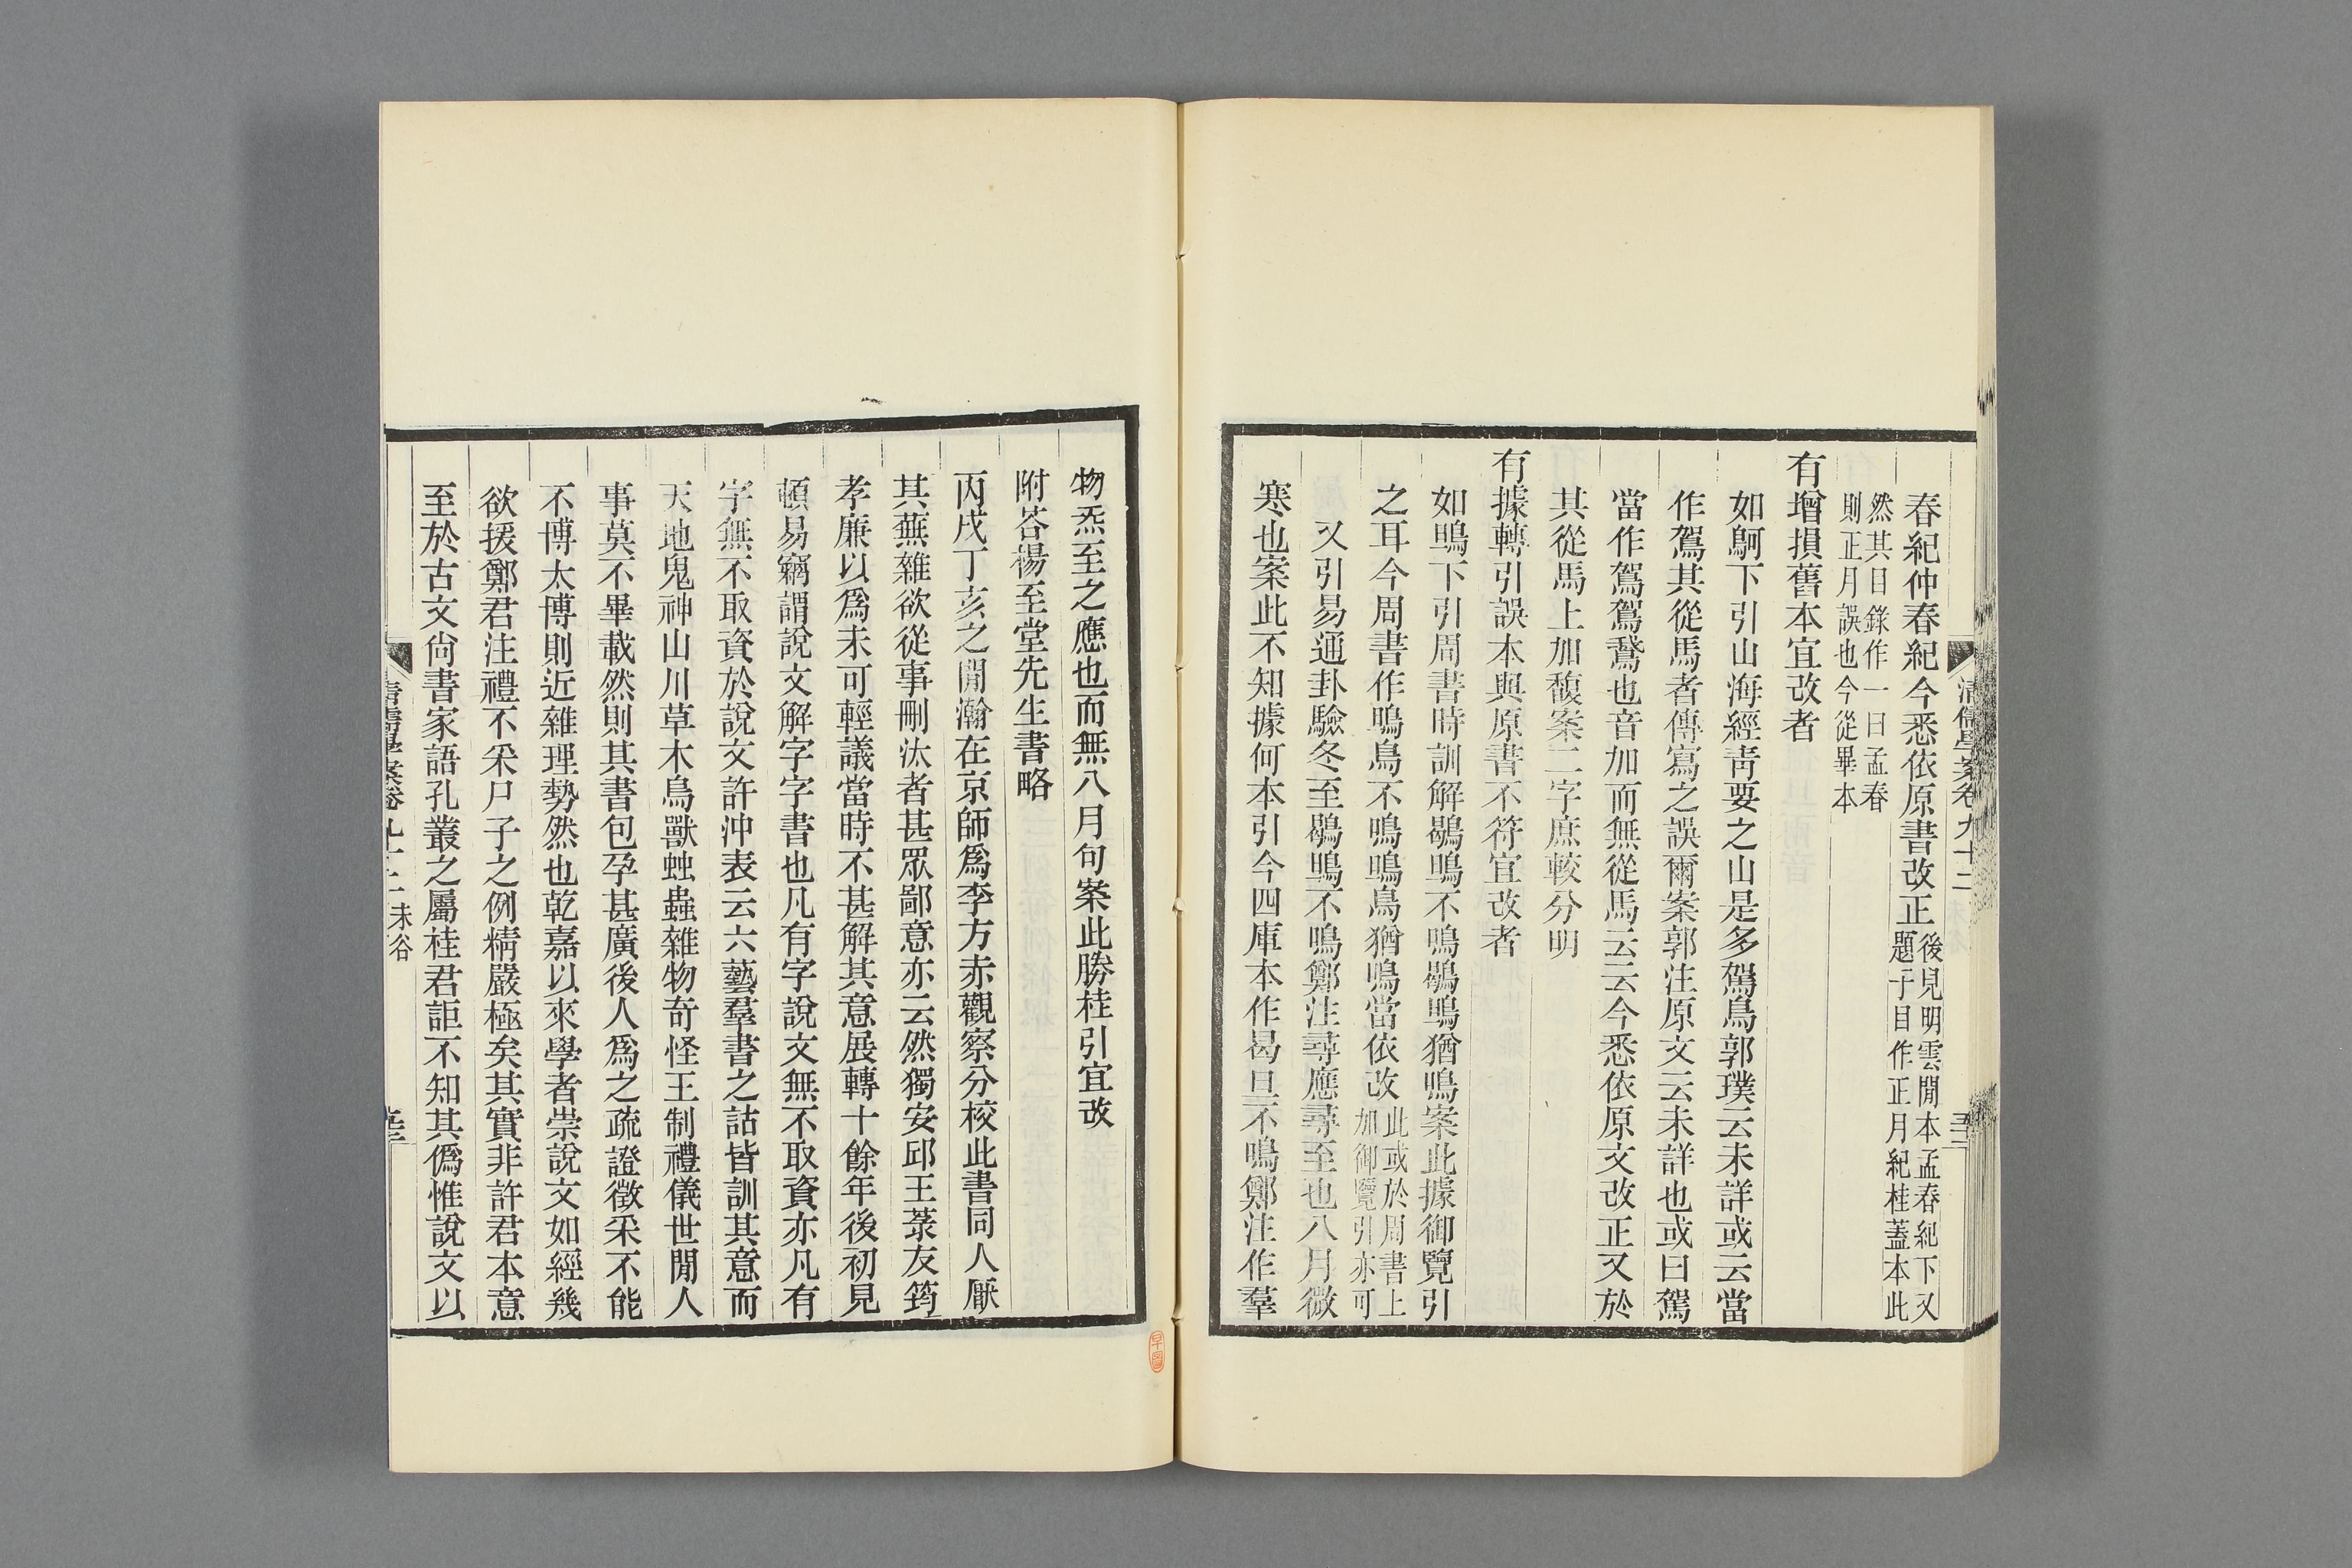 春紀仲春紀今悉依原書改正後見明雲閒本孟春紀下又題子目作正月紀桂蓋本此
然其目錄作一曰孟春則正月誤也今從畢本
有增損舊本宜改者
如鴚下引山海經靑要之山是多駕鳥郭璞云未詳或云當
作鴐其從馬者傳寫之誤爾案郭注原文云未詳也或曰駕
當作鴐鴐鵞也音加而無從馬云云今悉依原文改正又於
其從馬上加馥案二字庶較分明
有據轉引誤本與原書不符宜改者
如鴠下引周書時訓解鶡鴠不鳴鶡鴠猶鳴案此據御覽引
之耳今周書作鳱鳥不鳴鳱鳥猶鳴當依改此或於周書上加御覽引亦可
又引易通卦驗冬至鶡鴠不鳴鄭注尋應尋至也八月微
寒也案此不知據何本引今四庫本作曷旦不鳴鄭注作羣
物炁至之應也而無八月句案此勝桂引宜改
附答楊至堂先生書略
丙戌丁亥之閒瀚在京師爲李方赤觀察分校此書同人厭
其蕪雜欲從事刪汰者甚眾鄙意亦云然獨安邱王菉友筠
孝廉以爲未可輕議當時不甚解其意展轉十餘年後初見
頓易竊謂說文解字字書也凡有字說文無不取資亦凡有
字無不取資於說文許沖表云六藝羣書之詁皆訓其意而
天地鬼神山川草木鳥獸䖵蟲雜物奇怪王制禮儀世閒人
事莫不畢載然則其書包孕甚廣後人爲之疏證徵采不能
不博太博則近雜理勢然也乾嘉以來學者崇說文如經幾
欲援鄭君注禮不采尸子之例精嚴極矣其實非許君本意
至於古文尙書家語孔叢之屬桂君詎不知其僞惟說文以
清儒學案卷九十二 未谷